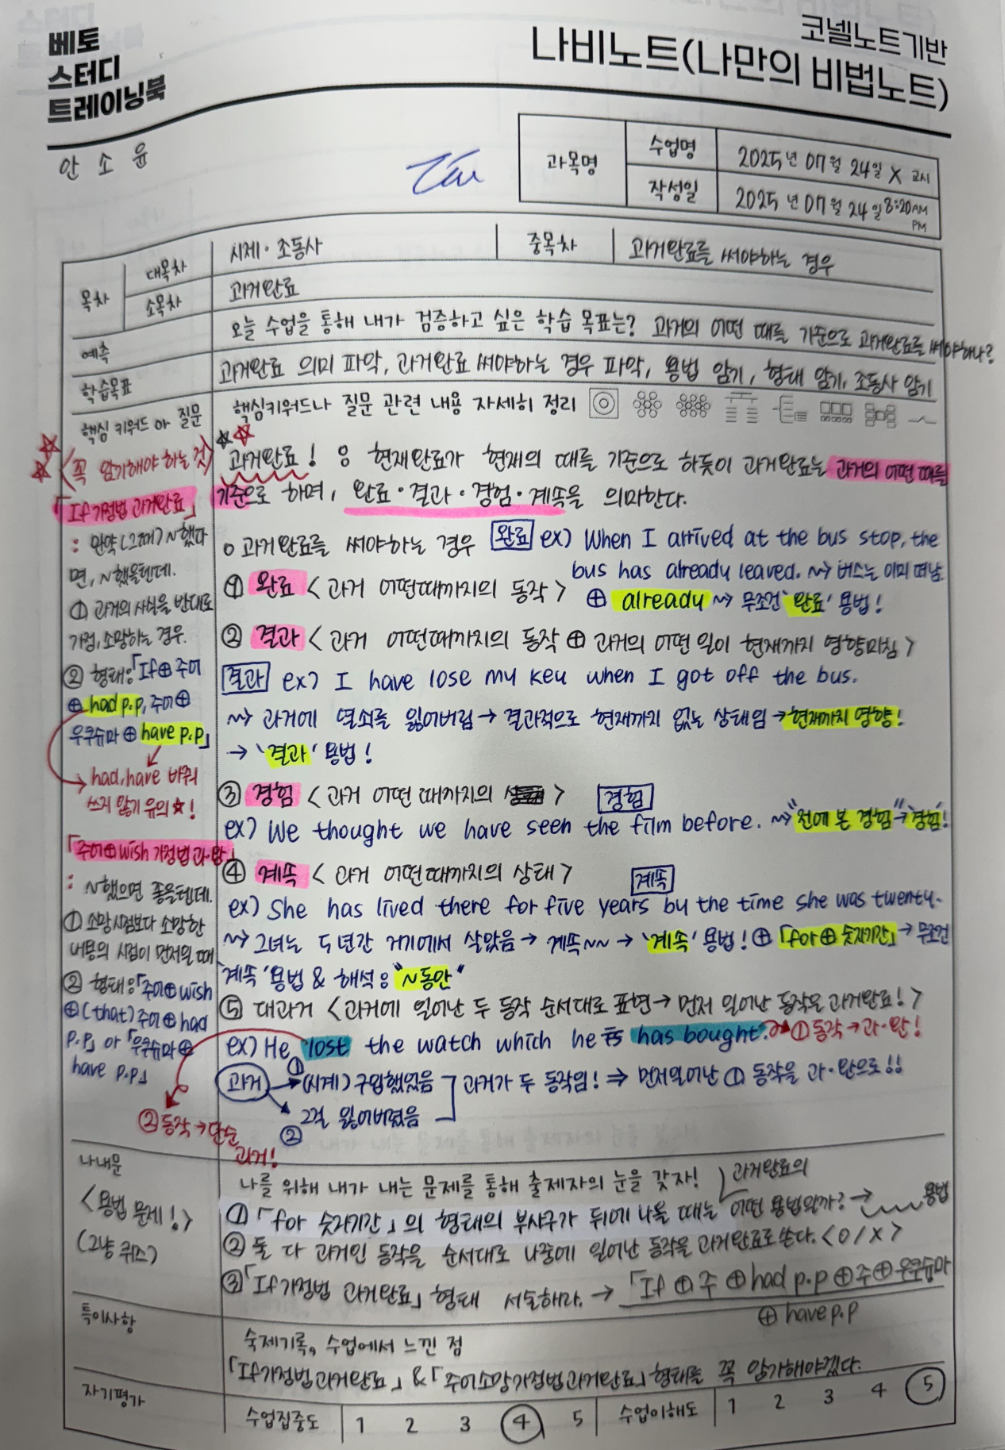 베토
스터디
트레이닝북
코넬노트기반
나비노트(나만의 비법노트)
안 소 윤
과목명
수업명
2025년 07월 24일 X 교시
작성일
2025년 07월 24일 8:20 AM
PM
목차
대목차
시제·조동사
중목차
과거완료를 써야하는 경우
소목차
과거완료
예측
오늘 수업을 통해 내가 검증하고 싶은 학습 목표는? 과거의 어떤 때를 기준으로 과거완료를 써야하나?
학습목표
과거완료 의미 파악, 과거완료 써야하는 경우 파악, 용법 암기, 형태 암기, 조동사 암기
핵심 키워드 아 질문
핵심키워드나 질문 관련 내용 자세히 정리
<꼭 암기해야 하는 것>
「If 가정법 과거완료」
: 만약 (그때) ~했다
면, ~했을텐데.
① 과거의 사실을 반대로
가정, 소망하는 경우.
② 형태:「If⊕주어
⊕had p.p, 주어⊕
우쿠슈마⊕have p.p」
→ had, have 바꿔
쓰지 않기 유의☆!
「주어⊕wish 가정법 과·완」
: ~했으면 좋을텐데.
① 소망시점보다 소망한
내용의 시점이 먼저일 때
② 형태:「주어⊕wish
⊕(that)주어⊕had
p.p」 or 「우쿠슈마⊕
have p.p」
☆☆
과거완료! : 현재완료가 현재의 때를 기준으로 하듯이 과거완료는 과거의 어떤 때를
기준으로 하며, 완료·결과·경험·계속을 의미한다.
o 과거완료를 써야하는 경우 완료 ex) When I arrived at the bus stop, the
bus has already leaved. ~> 버스는 이미 떠남.
① 완료 <과거 어떤때까지의 동작>
⊕ already ~> 무조건 '완료' 용법!
② 결과 <과거 어떤때까지의 동작 ⊕ 과거의 어떤 일이 현재까지 영향미침>
결과 ex) I have lose my key when I got off the bus.
~> 과거에 열쇠를 잃어버림 → 결과적으로 현재까지 없는 상태임 → 현재까지 영향!
→ '결과' 용법!
③ 경험 <과거 어떤 때까지의 > 경험
ex) We thought we have seen the film before. ~> "전에 본 경험" → 경험!
④ 계속 <과거 어떤때까지의 상태> 계속
ex) She has lived there for five years by the time she was twenty.
~> 그녀는 5년간 거기에서 살았음 → 계속~~ → '계속' 용법! ⊕ 「for⊕숫자기간」→ 무조건
'계속' 용법 & 해석: "~동안"
⑤ 대과거 <과거에 일어난 두 동작 순서대로 표현 → 먼저 일어난 동작은 과거완료!>
ex) He lost the watch which he has bought. ~> ① 동작 → 과·완!
과거 → ① (시계) 구입했었음
과거가 두 동작임! ⇒ 먼저일어난 ① 동작을 과·완으로!!
② 그걸 잃어버렸음
② 동작 → 단순
과거!
나내문
<용법 문제!>
(그냥 퀴즈)
나를 위해 내가 내는 문제를 통해 출제자의 눈을 갖자!
과거완료의
① 「for 숫자기간」의 형태의 부사구가 뒤에 나올 때는 어떤 용법일까? → 용법
② 둘 다 과거인 동작을 순서대로 나중에 일어난 동작을 과거완료로 쓴다. <O/X>
③ 「If가정법 과거완료」 형태 서술하라. → 「If⊕주⊕had p.p⊕주⊕우쿠슈마
⊕have p.p
특이사항
숙제기록, 수업에서 느낀 점
「If가정법과거완료」&「주어소망가정법과거완료」형태를 꼭 암기해야겠다.
자기평가
수업집중도 1 2 3 4 5
수업이해도 1 2 3 4 5